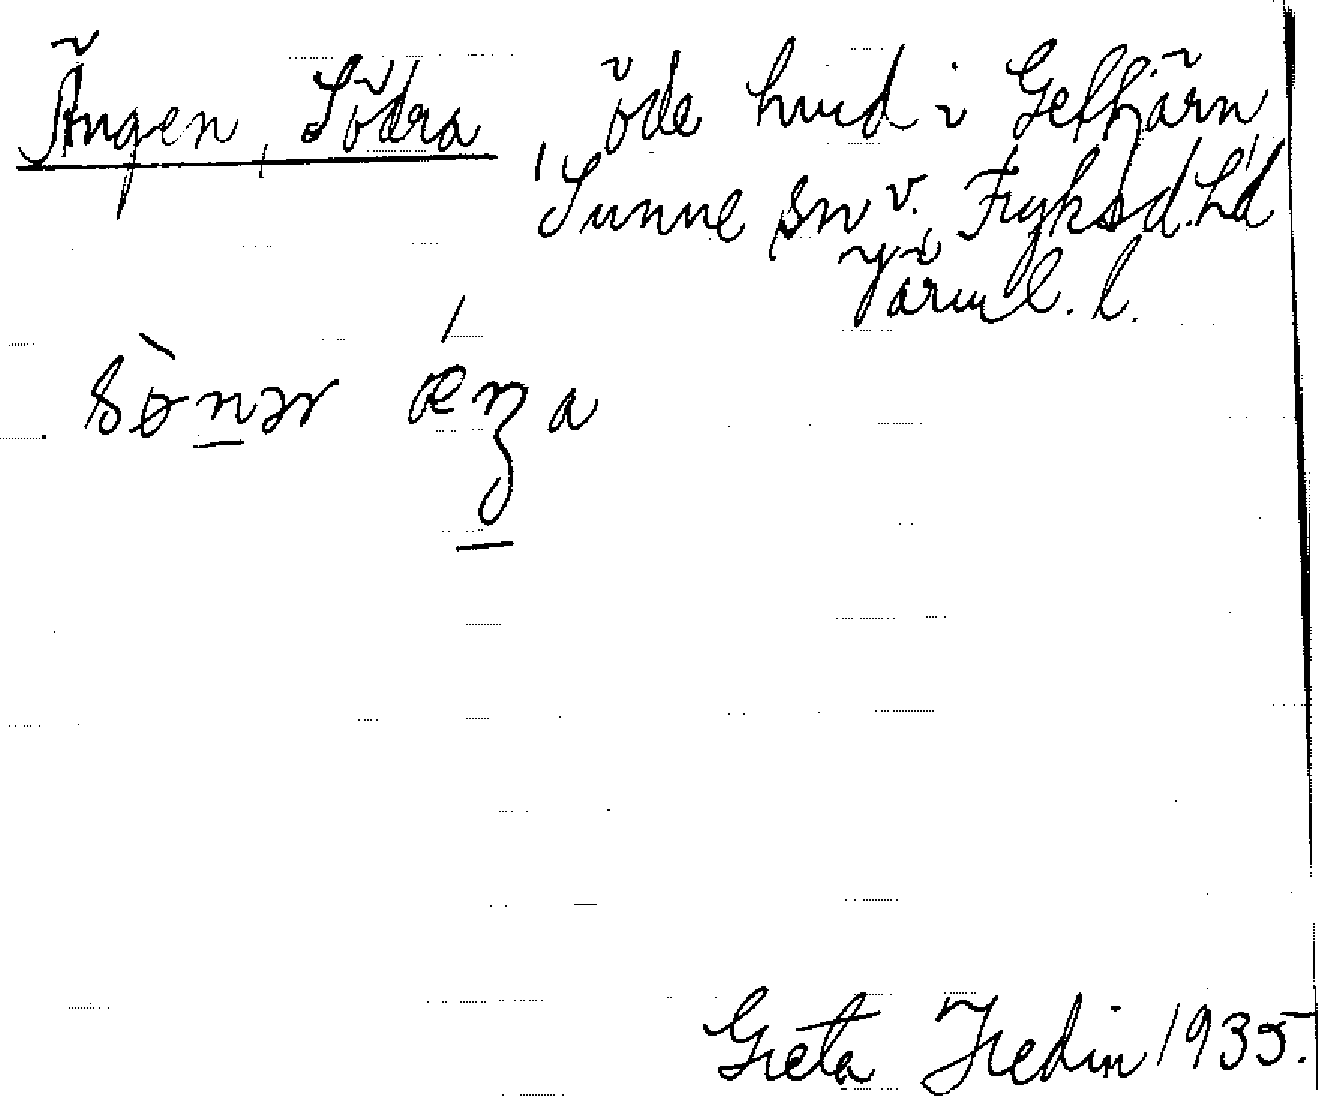 Ängen, Södra öde hmd i Gettjärn
Sunne sn v. Fryksd. hd
Värml. l.
sònər æ´ŋa
Greta Hedin 1935.